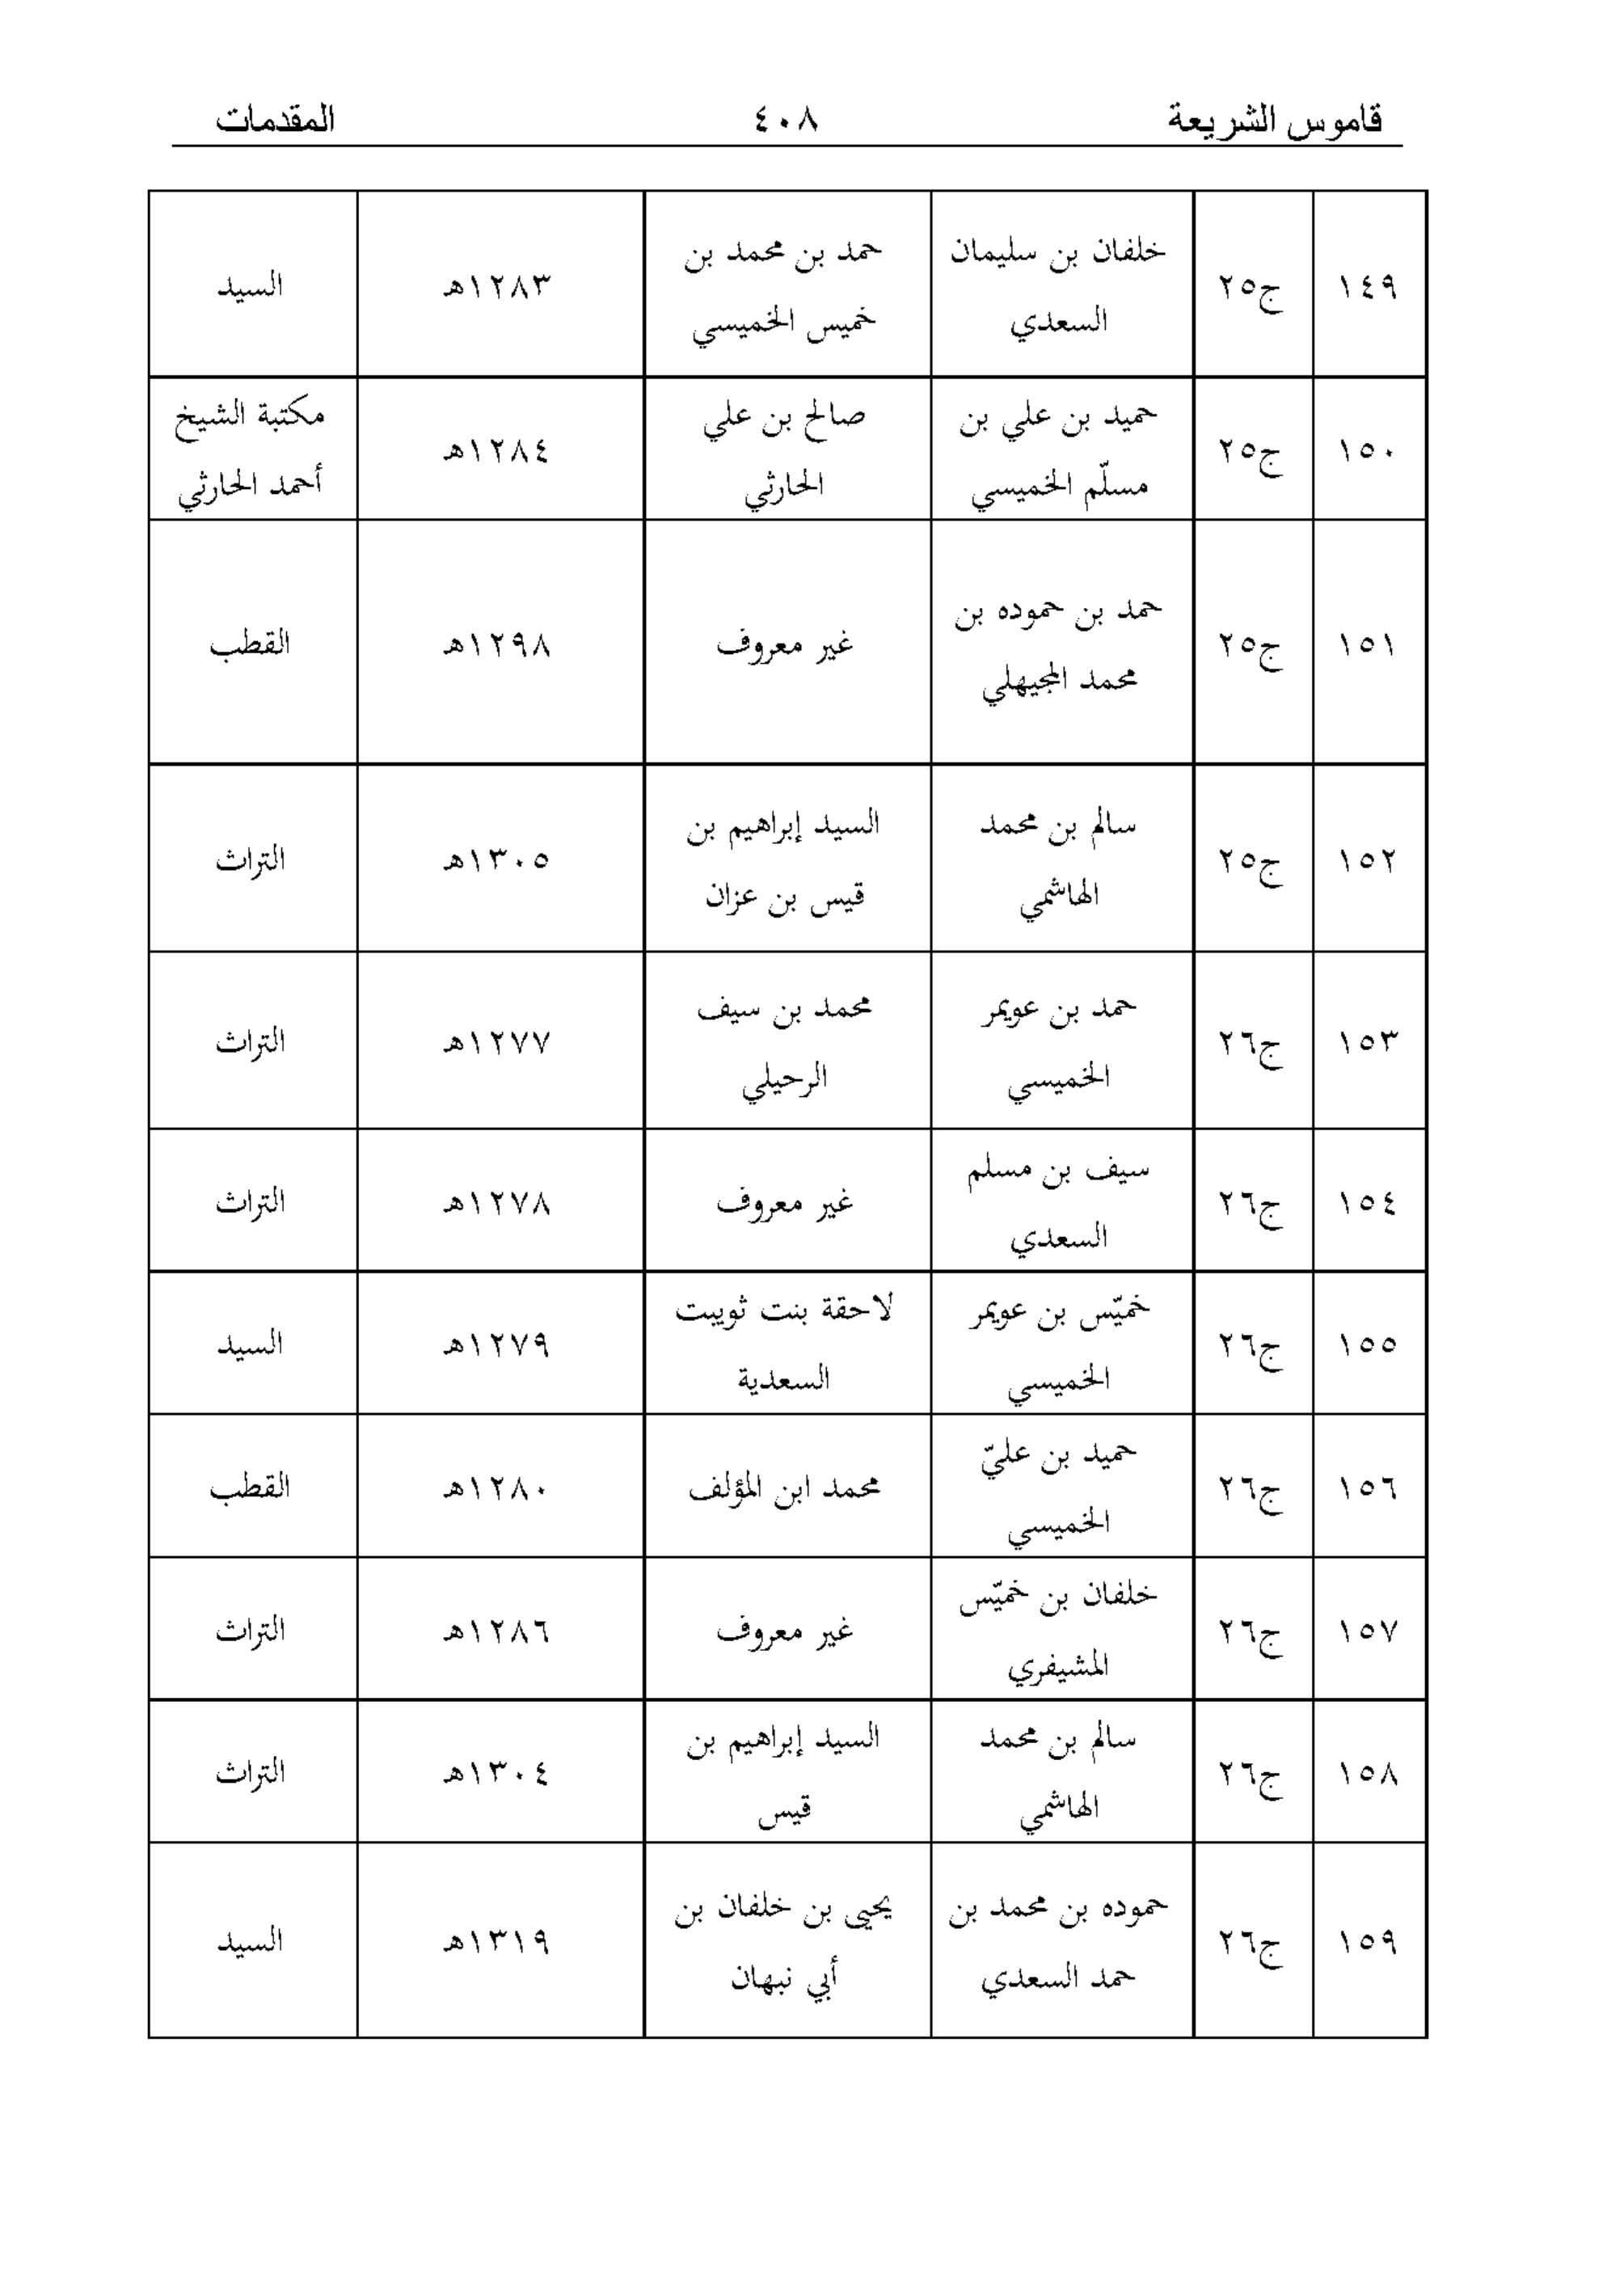 قاموس الشريعة ٤٠٨ المقدمات
١٤٩ ج٢٥ خلفان بن سليمان السعدي حمد بن محمد بن خميس الخميسي ١٢٨٣هـ السيد
١٥٠ ج٢٥ حميد بن علي بن مسلّم الخميسي صالح بن علي الحارثي ١٢٨٤هـ مكتبة الشيخ أحمد الحارثي
١٥١ ج٢٥ حمد بن حموده بن محمد المجيهلي غير معروف ١٢٩٨هـ القطب
١٥٢ ج٢٥ سالم بن محمد الهاشمي السيد إبراهيم بن قيس بن عزان ١٣٠٥هـ التراث
١٥٣ ج٢٦ حمد بن عويمر الخميسي محمد بن سيف الرحيلي ١٢٧٧هـ التراث
١٥٤ ج٢٦ سيف بن مسلم السعدي غير معروف ١٢٧٨هـ التراث
١٥٥ ج٢٦ خميّس بن عويمر الخميسي لاحقة بنت ثويبت السعدية ١٢٧٩هـ السيد
١٥٦ ج٢٦ حميد بن عليّ الخميسي محمد ابن المؤلف ١٢٨٠هـ القطب
١٥٧ ج٢٦ خلفان بن خميّس المشيفري غير معروف ١٢٨٦هـ التراث
١٥٨ ج٢٦ سالم بن محمد الهاشمي السيد إبراهيم بن قيس ١٣٠٤هـ التراث
١٥٩ ج٢٦ حموده بن محمد بن حمد السعدي يحيى بن خلفان بن أبي نبهان ١٣١٩هـ السيد